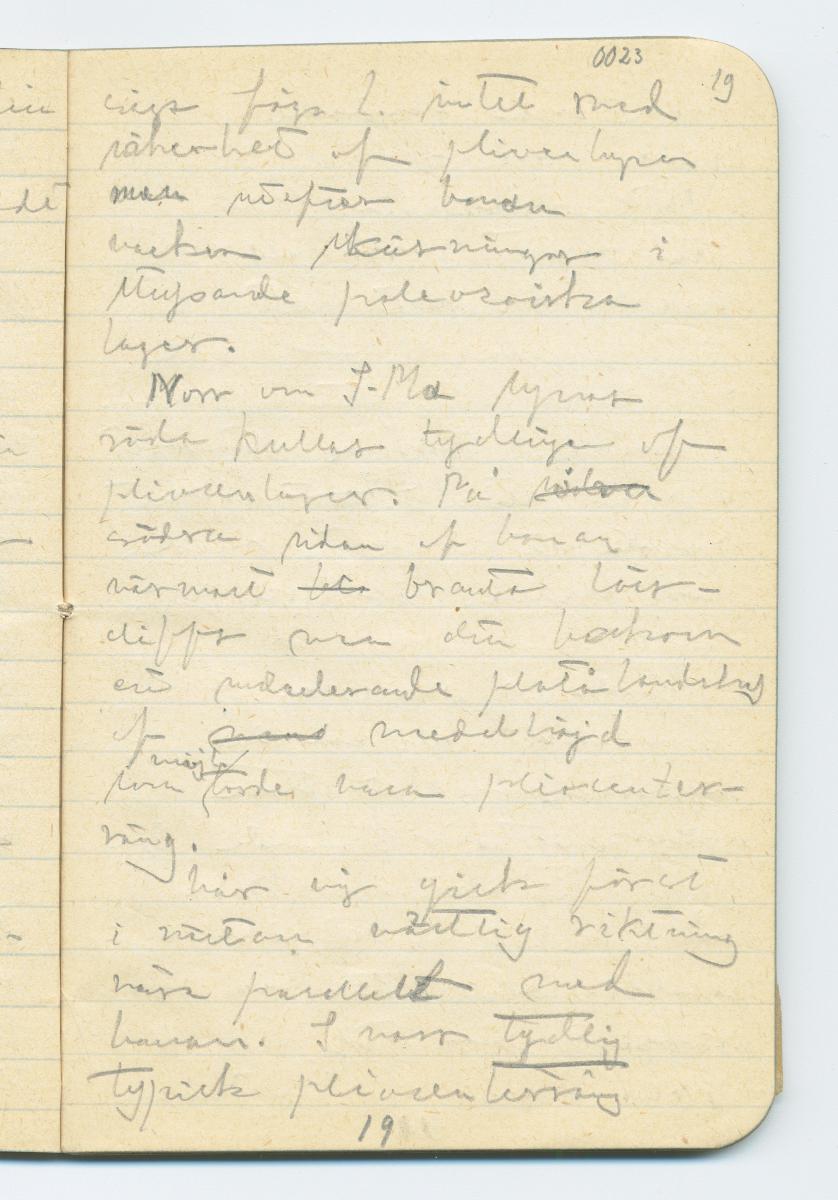 0023
19
inga säga l. intet med
säkerhet af pliocenlager
men utefter banan
vackra skärningar i
stupande paleozoiska
lager.
Norr om S-Ma synas
röda kullar tydligen af
pliocenlager. På södra
södra sidan af banan
närmast branta löss-
cliffs men den bakom
ett modelerande platålandskap
af medelhöjd
som möjl. torde vara pliocenter-
räng.
här väg gick först
i nästan västlig riktning
nära parallelt med
banan. I norr tydlig
typisk pliocenterräng
19